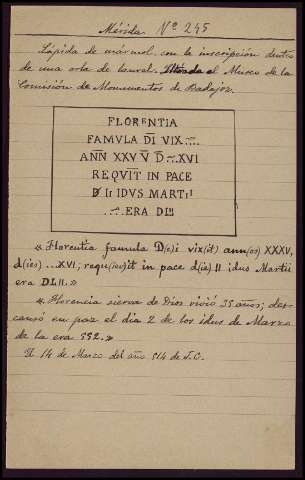 Mérida Nº 245
Lápida de mármol con la inscripción dentro
de una orla de laurel. el Museo de la
Comisión de Monumentos de Badajoz.
FLORENTIA
FAMVLA D̄Ī VIX....
AÑÑ XXV V̄ D...XVI
REQVĪT IN PACE
D̵ II IDUS MARTII
....ERA DLII
« Florentia famula D(e)i vix(it) ann(os) XXXV,
d(ies) ...XVI; requ(iev)it in pace d(ie) II idus Martii
era DLII. »
« Florencia sierva de Dios vivió 35 años; des-
cansó en paz el dia 2 de los idus de Marzo
de la era 552. »
El 14 de Marzo del año 514 de J.C.